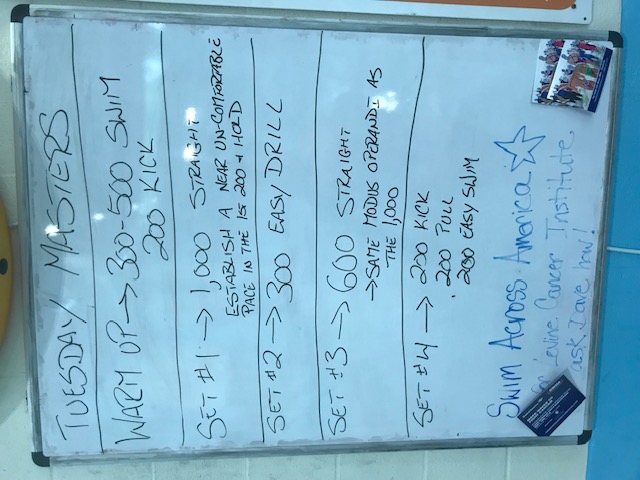 TUESDAY MASTERS
WARM UP → 300-500 SWIM
200 KICK
SET #1 → 1,000 STRAIGHT
ESTABLISH A NEAR UN-COMFORTABLE
PACE IN THE 1st 200 & HOLD
SET #2 → 300 EASY DRILL
SET #3 → 600 STRAIGHT
→ SAME MODUS OPERANDI AS
THE 1,000
SET #4 → 200 KICK
200 PULL
200 EASY SWIM
Swim Across America ☆
for Levine Cancer Institute,
ask Dave how!